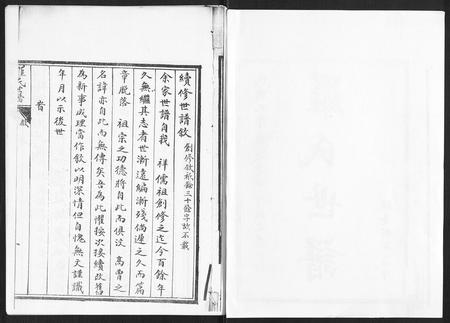 續修世譜敘 創修敘祇餘三十餘字故不載
余家世譜自我 祥儒祖創修之迄今百餘年
久無繼其志者世漸遠編漸殘倘遲之久而篇
章脫落 祖宗之功德將自此而俱沒 高曾之
名諱亦自此而無傳矣吾為此懼按次接續故舊
為新事成理當作敘以明深情但自愧無文謹識
年月以示後世
旹
氏世譜
敘